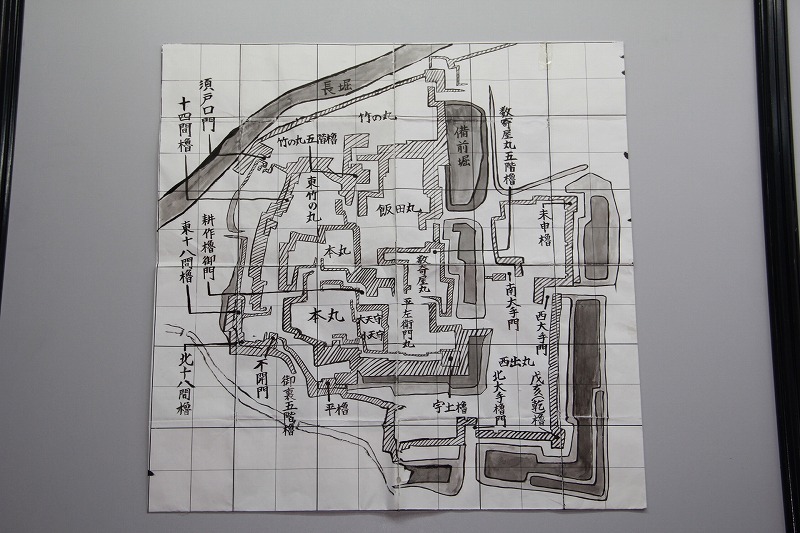 長堀
須戸口門
十四間櫓
竹の丸
竹の丸五階櫓
備前堀
数寄屋丸五階櫓
東竹の丸
飯田丸
未申櫓
耕作櫓御門
東十八間櫓
本丸
数寄屋丸
南大手門
西大手門
本丸
大天守
小天守
平左衛門丸
西出丸
北十八間櫓
不開門
御裏五階櫓
平櫓
宇土櫓
北大手櫓門
戊亥乾櫓